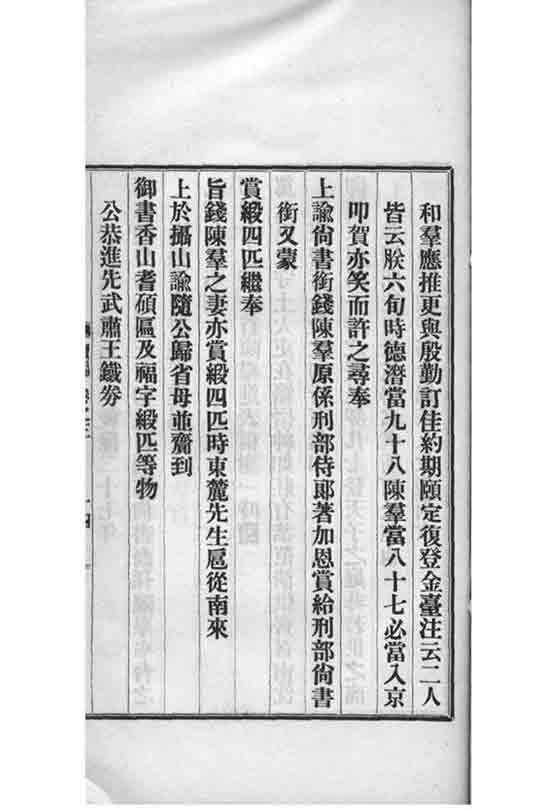 和羣應推更與殷勤訂佳約期頤定復登金臺注云二人
皆云朕六旬時德潛當九十八陳羣當八十七必當入京
叩賀亦笑而許之尋奉
上諭尙書銜錢陳羣原係刑部侍郞著加恩賞給刑部尙書
銜又蒙
賞緞四匹繼奉
旨錢陳羣之妻亦賞緞四匹時東麓先生扈從南來
上於攝山諭隨公歸省母並齎到
御書香山耆碩匾及福字緞匹等物
公恭進先武肅王鐵券